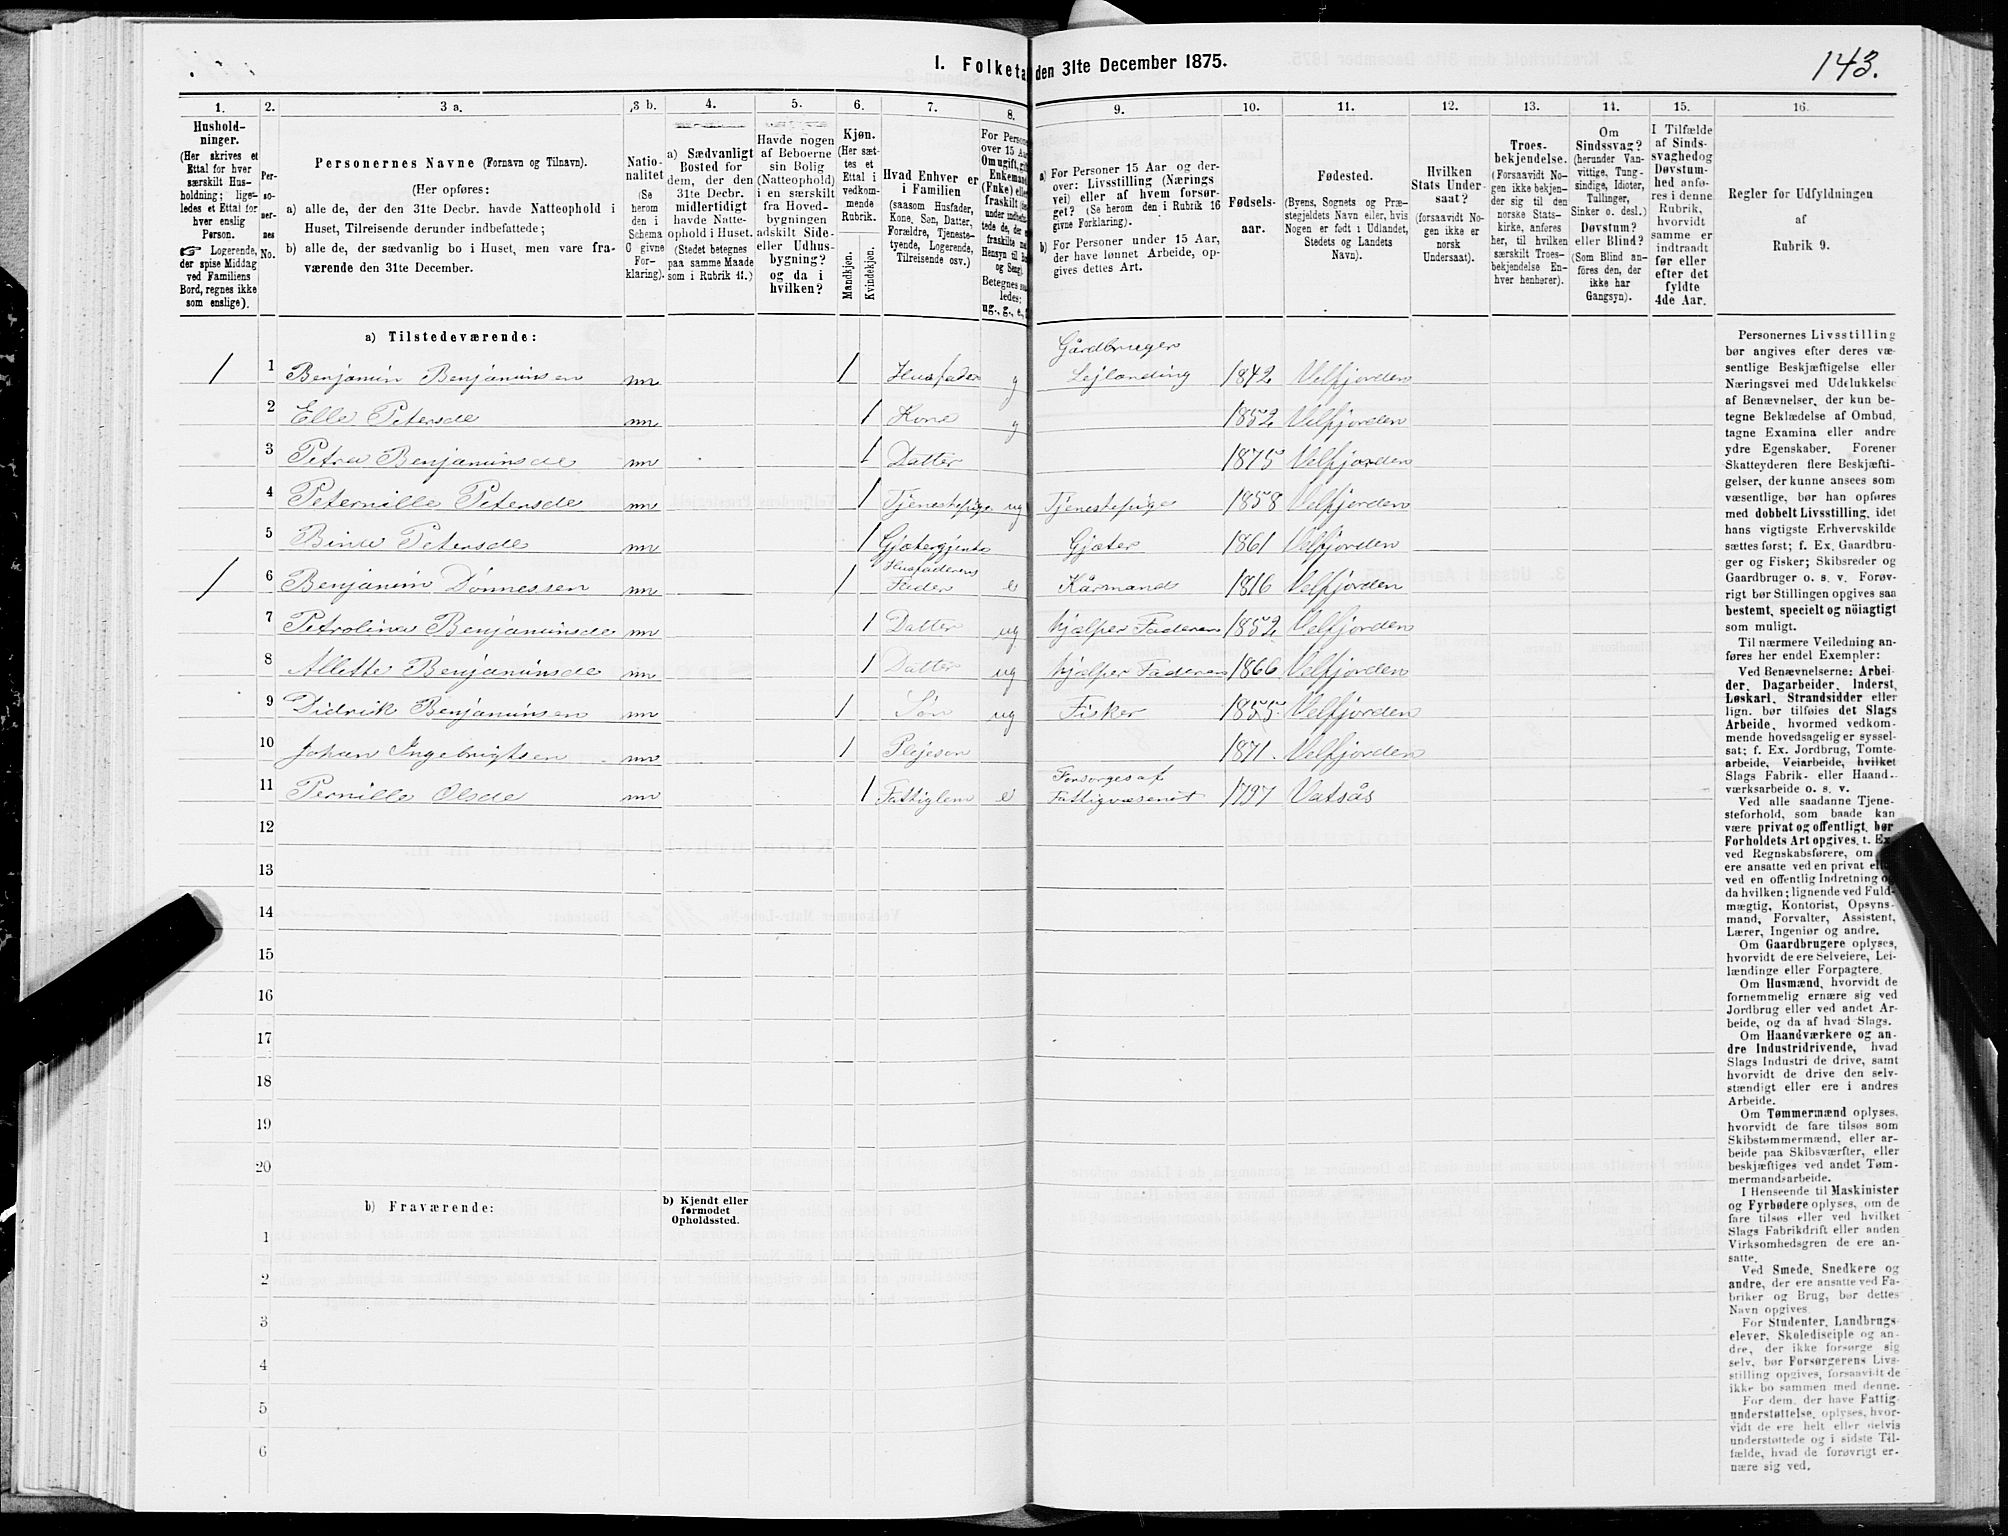 I. Folketa den 31te December 1875.
143.
1.
Hushold-
ninger.
(Her skrives et
Ettal for hver
særskilt Hus-
holdning; lige-
ledes et Ettal for
hver enslig
Person.
☞ Logerende,
der spise Middag
ved Familiens
Bord, regnes ikke
som enslige).
2.
Per-
so-
ner-
nes
No.
3 a.
Personernes Navne (Fornavn og Tilnavn).
(Her opføres:
a) alle de, der den 31te Decbr. havde Natteophold i
Huset, Tilreisende derunder indbefattede;
b) alle de, der sædvanlig bo i Huset, men vare fra-
værende den 31te December.
3 b.
Natio-
nalitet
(Se
herom
den i
Schema
C givne
For-
klaring).
4.
a) Sædvanligt
Bosted for
dem, der den
31te Decbr.
midlertidigt
havde Natte-
ophold i Huset.
(Stedet betegnes
paa samme Maade
som i Rubrik 11.)
5.
Havde nogen
af Beboerne
sin Bolig
(Natteophold)
i en særskilt
fra Hoved-
bygningen
adskilt Side-
eller Udhus-
bygning?
og da i
hvilken?
6.
Kjøn.
(Her sæt-
tes et
Ettal i
vedkom-
mende
Rubrik.
Mandkjøn.
Kvindekjøn.
7.
Hvad Enhver er
i Familien
(saasom Husfader,
Kone, Søn, Datter,
Forældre, Tjeneste-
tyende, Logerende,
Tilreisende osv.)
8.
For Persone
over 15 Aa
Omugift, gift
Enkemand
(Fnke) eller
fraskilt
under indbefat-
tede de, der e
fraskilte
Hensyn til
og Seng).
Betegnes saa-
ledes:
ug., g., e.,
9.
a) For Personer 15 Aar og der-
over: Livsstilling (Nærings
vei) eller af hvem forsør-
get? (Se herom den i Rubrik 16
givne Forklaring).
b) For Personer under 15 Aar,
der have lønnet Arbeide, op-
gives dettes Art.
10.
Fødsels-
aar.
11.
Fødested.
(Byens, Sognets og Præ-
stegjeldets Navn eller, hvis
Nogen er født i Udlandet,
Stedets og Landets
Navn).
12.
Hvilken
Stats Under-
saat?
(forsaavidt No-
gen ikke er
norsk
Undersaat).
13.
Troes-
bekjendelse.
(Forsaavidt No-
gen ikke bekjen-
der sig til den
norske Stats-
kirke, anføres
her, til hvilken
særskilt Troes-
bekjendelse En-
hver henhører).
14.
Om
Sindssvag?
(herunder Van-
vittige, Tung-
sindige, Idioter,
Tullinger,
Sinker o. desl.)
Døvstum?
eller Blind?
(Som Blind an-
føres den, der
ikke har
Gangsyn).
15.
I Tilfælde
af Sinds-
svaghedog
Døvstum-
hed anfø-
res i denne
Rubrik,
hvorvidt
samme er
indtraadt
før eller
efter det
fyldte
4de Aar.
16.
Regler for Udfyldningen
af
Rubrik 9.
a) Tilstedeværende:
Gårdbruger
1 1 Benjamin Benjaminsen nn 1 Husfader g Lejlending 1842 Velfjorden
2 Elle Petersde nn 1 Kone g 1852 Velfjorden
3 Petra Benjaminsde nn 1 Datter 1875 Velfjorden
4 Peternille Petersde nn 1 Tjenestepige ug Tjenestepige 1858 Velfjorden
5 Petersde nn 1 Gjætergjente Gjæter 1861 Velfjorden
Husfaderens
1 6 Benjamin Dønnessen nn 1 Fader e Kårmand 1816 Velfjorden
7 Petrolina Benjaminsde nn 1 Datter ug hjælper Faderen 1852 Velfjorden
8 Allette Benjaminsde nn 1 Datter ug hjælper Faderen 1866 Velfjorden
9 Didrik Benjaminsen nn 1 Søn ug Fisker 1855 Velfjorden
10 Johan Ingebrigtsen nn 1 Plejesøn 1871. Velfjorden
Forsorges af
11 Pernille Olsde nn 1 Fattiglem e Fattigvæsenet 1797 Vatsås
12
13
14
15
16
17
18
19
20
b) Fraværende:
b) Kjendt eller
formodet
Opholdssted.
1
2
3
4
5
6
Personernes Livsstilling
bør angives efter deres væ-
sentlige Beskjæftigelse eller
Næringsvei med Udelukkelse
af Benævnelser, der kun be-
tegne Beklædelse af Ombud,
tagne Examina eller andre
ydre Egenskaber. Forener
Skatteyderen flere Beskjæfti-
gelser, der kunne ansees som
væsentlige, bør han opføres
med dobbelt Livsstilling, idet
hans vigtigste Erhvervskilde
sættes først; f. Ex. Gaardbru-
ger og Fisker; Skibsreder og
Gaardbruger o. s. v. Forøv-
rigt bør Stillingen opgives saa
bestemt, specielt og nöiagtigt
som muligt.
Til nærmere Veiledning an-
føres her endel Exempler:
Ved Benævnelserne: Arbei-
der, Dagarbeider, Inderst,
Løskarl, Strandsidder eller
lign. bør tilføies det Slags
Arbeide, hvormed vedkom-
mende hovedsagelig er syssel-
sat; f. Ex. Jordbrug, Tomte-
arbeide, Veiarbeide, hvilket
Slags Fabrik- eller Haand-
værksarbeide o. s. v.
Ved alle saadanne Tjene-
steforhold, som baade kan
være privat og offentligt, bør
Forholdets Art opgives, t. Ex.
ved Regnskabsførere, om
ere ansatte ved en privat el
ved en offentlig Indretning og
da hvilken; lignende ved Fuld-
mægtig, Kontorist, Opsyns-
mand, Forvalter, Assistent,
Lærer, Ingeniør og andre.
Om Gaardbrugere oplyses,
hvorvidt de ere Selveiere, Lei-
lændinge eller Forpagtere.
Om Husmænd, hvorvidt de
fornemmelig ernære sig ved
Jordbrug eller ved andet Ar-
beide, og da af hvad Slags.
Om Haandværkere og an-
dre Industridrivende, hvad
Slags Industri de drive, samt
hvorvidt de drive den selv-
stændigt eller ere i andres
Arbeide.
Om Tømmermænd oplyses,
hvorvidt de fare tilsøs som
Skibstømmermænd, eller ar-
beide paa Skibsværfter, eller
beskjæftiges ved andet Tøm-
mermandsarbeide.
I Henseende til Maskinister
og Fyrbødere oplyses, om de
fare tilsøs eller ved hvilket
Slags Fabrikdrift eller anden
Virksomhedsgren de ere an-
satte.
Ved Smede, Snedkere og
andre, der ere ansatte ved Fa-
briker og Brug, bør dettes
Navn opgives.
For Studenter, Landbrugs-
elever, Skoledisciple og an-
dre, der ikke forsørge sig
selv, bør Forsørgerens Livs-
stilling opgives, forsaavidt de
ikke bo sammen med denne.
For dem, der have Fattig-
understøttelse, oplyses, hvor-
vidt de ere helt eller delvis
understøttede og i sidste Til-
fælde, hvad de forøvrigt er-
nære sig ved.